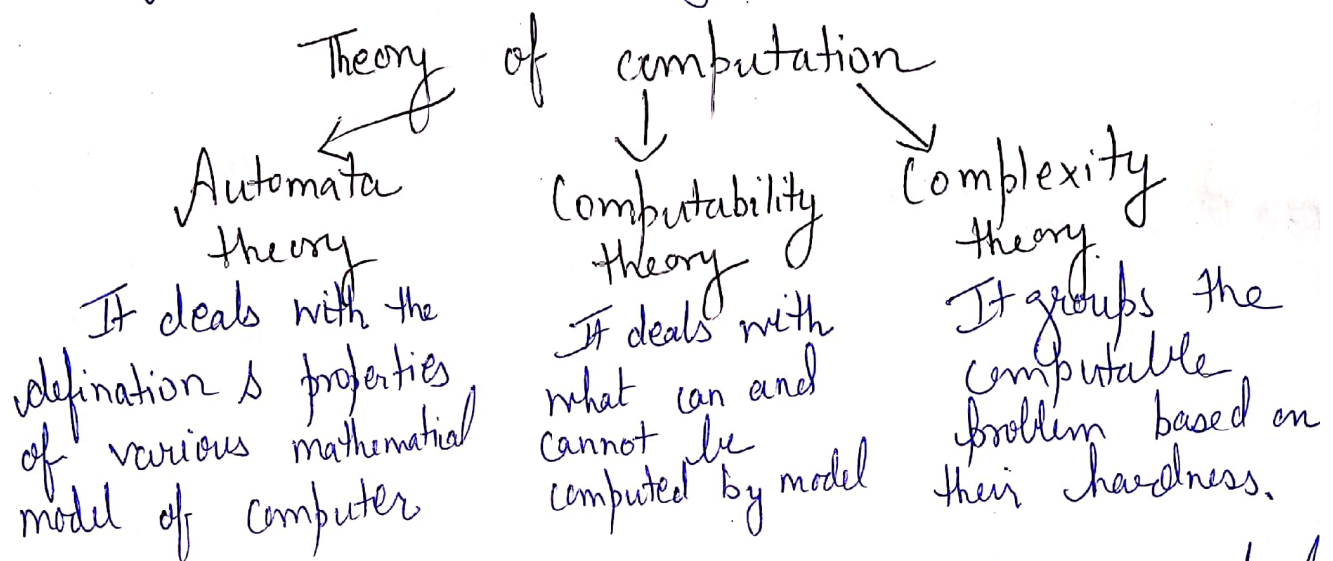 Theory of computation
Automata
theory
It deals with the
defination & properties
of various mathematical
model of computer
Computability
theory
It deals with
what can and
cannot be
computed by model
Complexity
theory.
It groups the
computable
problem based on
their hardness.